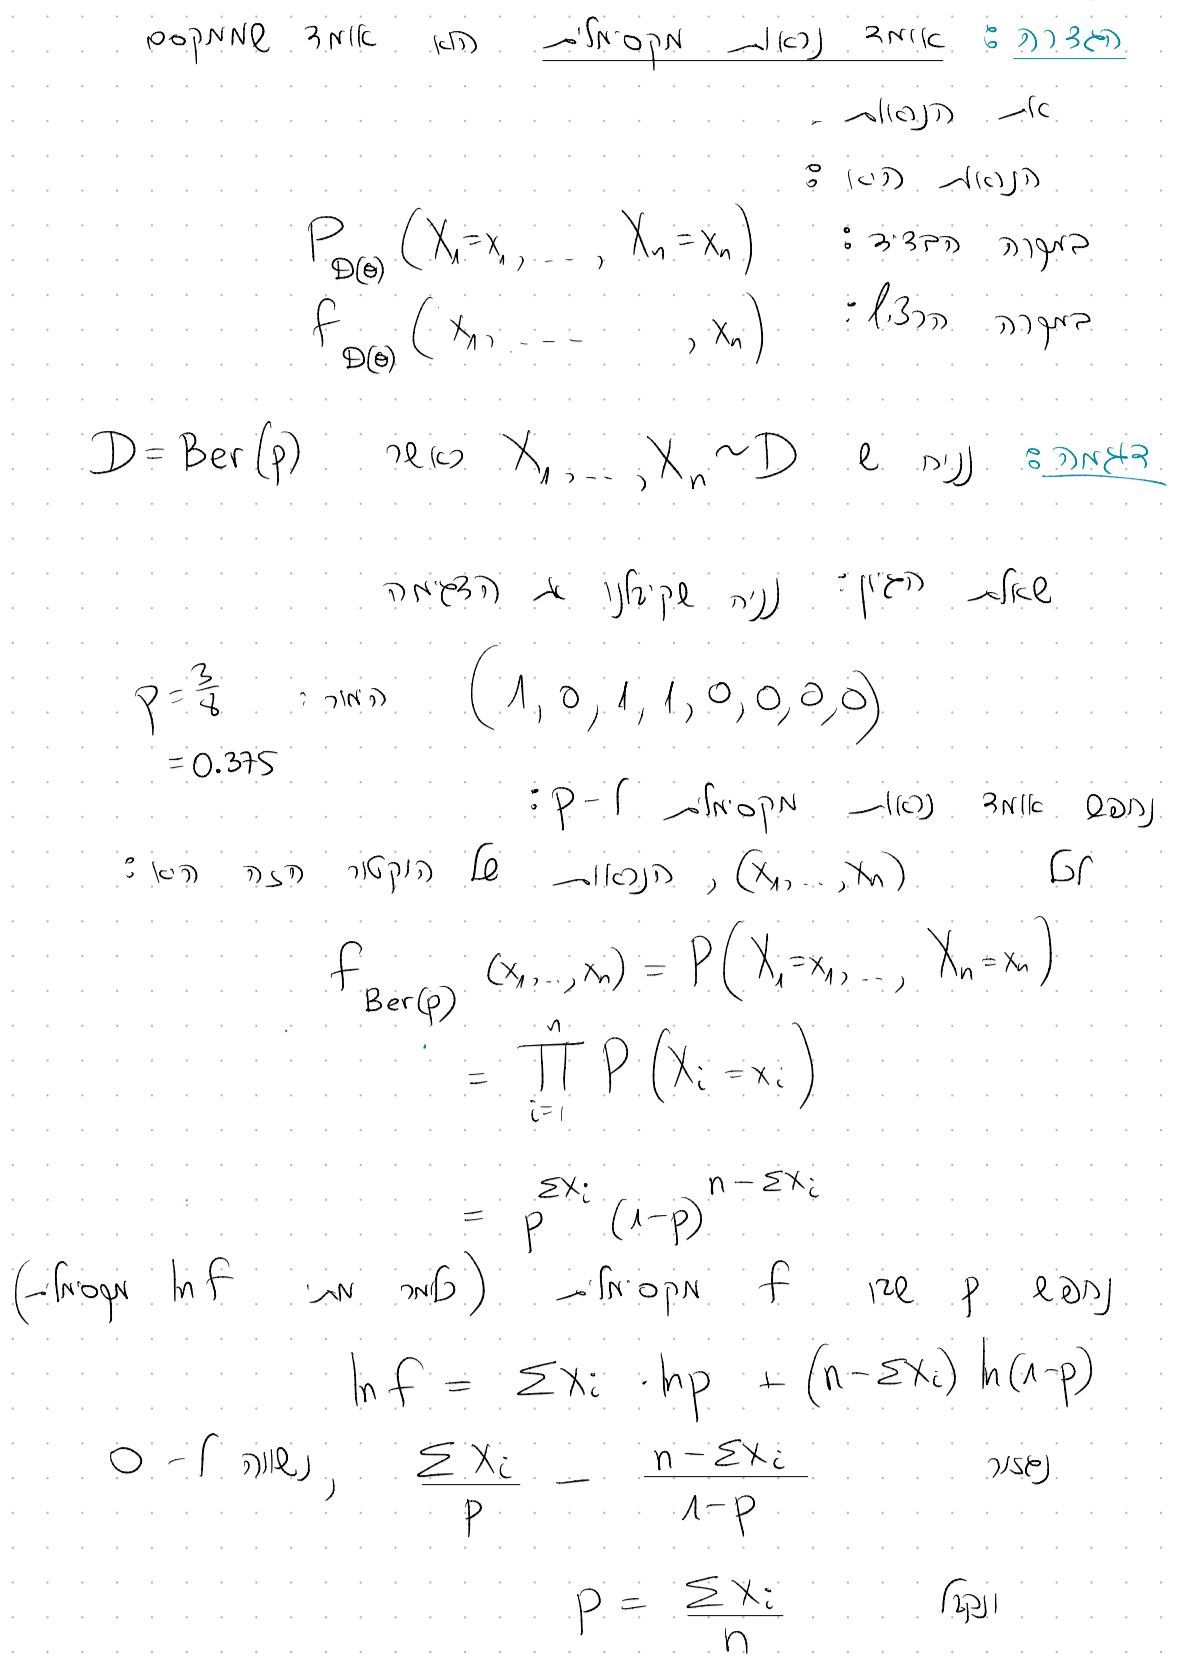 הגדרה: אומד נראות מקסימלית הוא אומד שממקסם
את הנראות.
הנראות היא:
במקרה הבדיד: P_{D(θ)} (X₁=x₁, ..., Xₙ=xₙ)
במקרה הרציף: f_{D(θ)} (x₁, ..., xₙ)
דוגמה: נניח ש X₁, ..., Xₙ ~ D כאשר D = Ber(p)
שאלת הגיון: נניח שקיבלנו את הדגימה
(1, 0, 1, 1, 0, 0, 0, 0) הימור: p = 3/8
= 0.375
נחפש אומד נראות מקסימלית ל-p:
לכל (x₁, ..., xₙ), הנראות של הוקטור הזה היא:
f_{Ber(p)} (x₁, ..., xₙ) = P(X₁=x₁, ..., Xₙ=xₙ)
= ∏_{i=1}^{n} P(Xᵢ = xᵢ)
= p^{Σxᵢ} (1-p)^{n-Σxᵢ}
נחפש p שבו f מקסימלית (כלומר מתי ln f מקסימלית)
ln f = Σxᵢ · ln p + (n-Σxᵢ) ln(1-p)
נגזור Σxᵢ/p - (n-Σxᵢ)/(1-p), נשווה ל-0
ונקבל p = Σxᵢ/n